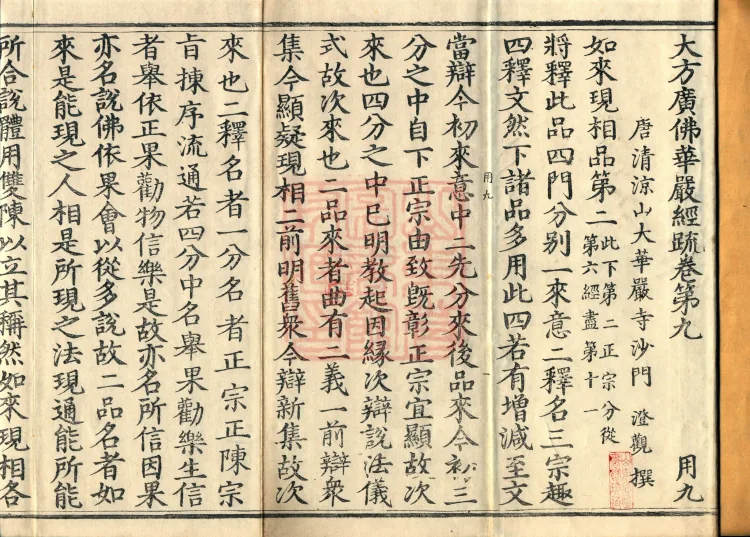 大方廣佛華嚴經疏卷第九 用九
唐清涼山大華嚴寺沙門 澄觀 撰
如來現相品第二 此下第二正宗分從
第六經盡第十一
將釋此品四門分别一來意二釋名三宗趣
四釋文然下諸品多用此四若有增減至文
用九
當辯今初來意中二先分來後品來今初三
分之中自下正宗由致旣彰正宗宜顯故次
來也四分之中已明教起因緣次辯說法儀
式故次來也二品來者曲有二義一前辯衆
集今顯疑現相二前明舊衆今辯新集故次
來也二釋名者一分名者正宗正陳宗
旨揀序流通若四分中名舉果勸樂生信
者舉依正果勸物信樂是故亦名所信因果
亦名說佛依果會以從多說故二品名者如
來是能現之人相是所現之法現通能所能
所合說體用雙陳以立其稱然如來現相各